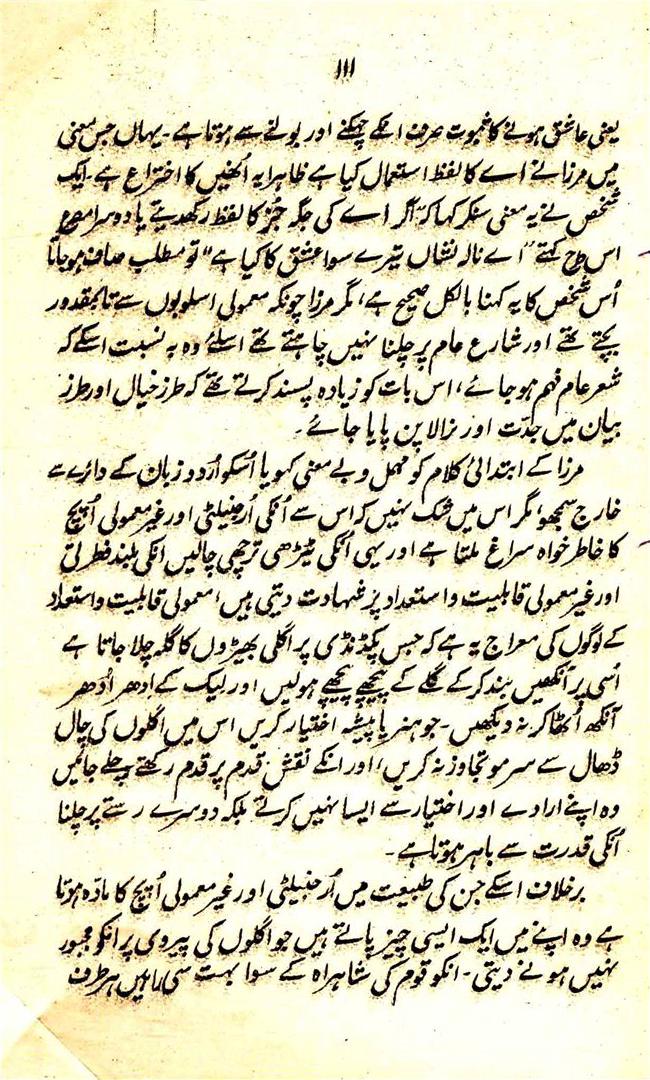 ۱۱۱
یعنی عاشق ہونے کا ثبوت صرف اسکے چہکنے اور بولنے سے ہوتا ہے۔ یہاں جس معنی
میں مرزا نے اے کا لفظ استعمال کیا ہے ظاہرا یہ اُنھیں کا اختراع ہے۔ ایک
شخص نے یہ معنی سنکر کہا کہ "اگر اے کی جگہ جُز کا لفظ رکھدیتے یا دوسرا مصرع
اس طرح کہتے "اے نالہ نشاں تیرے سوا عشق کا کیا ہے" تو مطلب صاف ہوجاتا
اُس شخص کا یہ کہنا بالکل صحیح ہے، مگر مرزا چونکہ معمولی اسلوبوں سے تابمقدور
بچتے تھے اور شارع عام پر چلنا نہیں چاہتے تھے اسلئے وہ بہ نسبت اسکے کہ
شعر عام فہم ہوجائے، اس بات کو زیادہ پسند کرتے تھے کہ طرز خیال اور طرز
بیان میں جدّت اور نرالا پن پایا جائے۔
مرزا کے ابتدائی کلام کو مہمل و بے معنی کہو یا اُسکو اُردو زبان کے دائرے سے
خارج سمجھو، مگر اس میں شک نہیں کہ اس سے اُنکی اُرجنیلٹی اور غیر معمولی اُپج
کا خاطر خواہ سراغ ملتا ہے اور یہی اُنکی ٹیڑھی ترچھی چالیں انکی بلند فطرتی
اور غیر معمولی قابلیت و استعداد پر شہادت دیتی ہیں، معمولی قابلیت و استعداد
کے لوگوں کی معراج یہ ہے کہ جس پگڈنڈی پر اگلی بھیڑوں کا گلہ چلا جاتا ہے
اُسی پر آنکھیں بند کرکے گلے کے پیچھے پیچھے ہولیں اور لیک کے اِدھر اُدھر
آنکھ اُٹھا کر نہ دیکھیں۔ جو ہنر یا پیشہ اختیار کریں اس میں اگلوں کی چال
ڈھال سے سرمو تجاوز نہ کریں، اور انکے نقش قدم پر قدم رکھتے چلے جائیں
وہ اپنے ارادے اور اختیار سے ایسا نہیں کرتے بلکہ دوسرے رستے پر چلنا
اُنکی قدرت سے باہر ہوتا ہے۔
برخلاف اسکے جن کی طبیعت میں اُرجنیلٹی اور غیر معمولی اُپج کا مادّہ ہوتا
ہے وہ اپنے میں ایک ایسی چیز پاتے ہیں جو اگلوں کی پیروی پر انکو مجبور
نہیں ہونے دیتی۔ انکو قوم کی شاہراہ کے سوا بہت سی راہیں ہر طرف